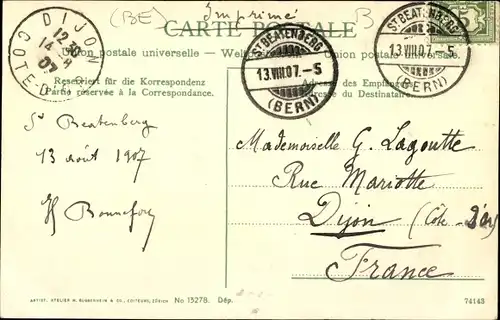 (BE)
Imprimé
B
CARTE POSTALE
Union postale universelle. — Union postale universale.
Reserviert für die Korrespondenz
Partie réservée à la Correspondance.
Adresse du Destinataire.
DIJON
COTE-D
14
07
ST BEATENBERG
13.VIII.07.-5
(BERN)
ST BEATENBERG
13.VIII.07.-5
(BERN)
5
St Beatenberg
13 août 1907
Mademoiselle G. Lagoutte
Rue Mariotte
Dijon (Côte d'Or)
France
ARTIST. ATELIER H. GUGGENHEIM & CO., EDITEURS, ZÜRICH No 13278. Dép.
74143